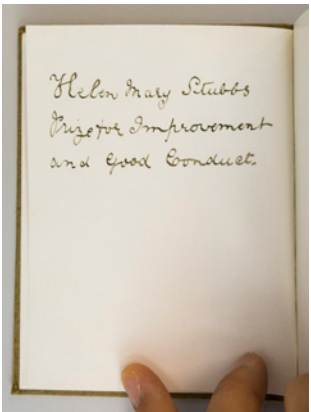 Helen Mary Stubbs
Prize for Improvement
and Good Conduct.